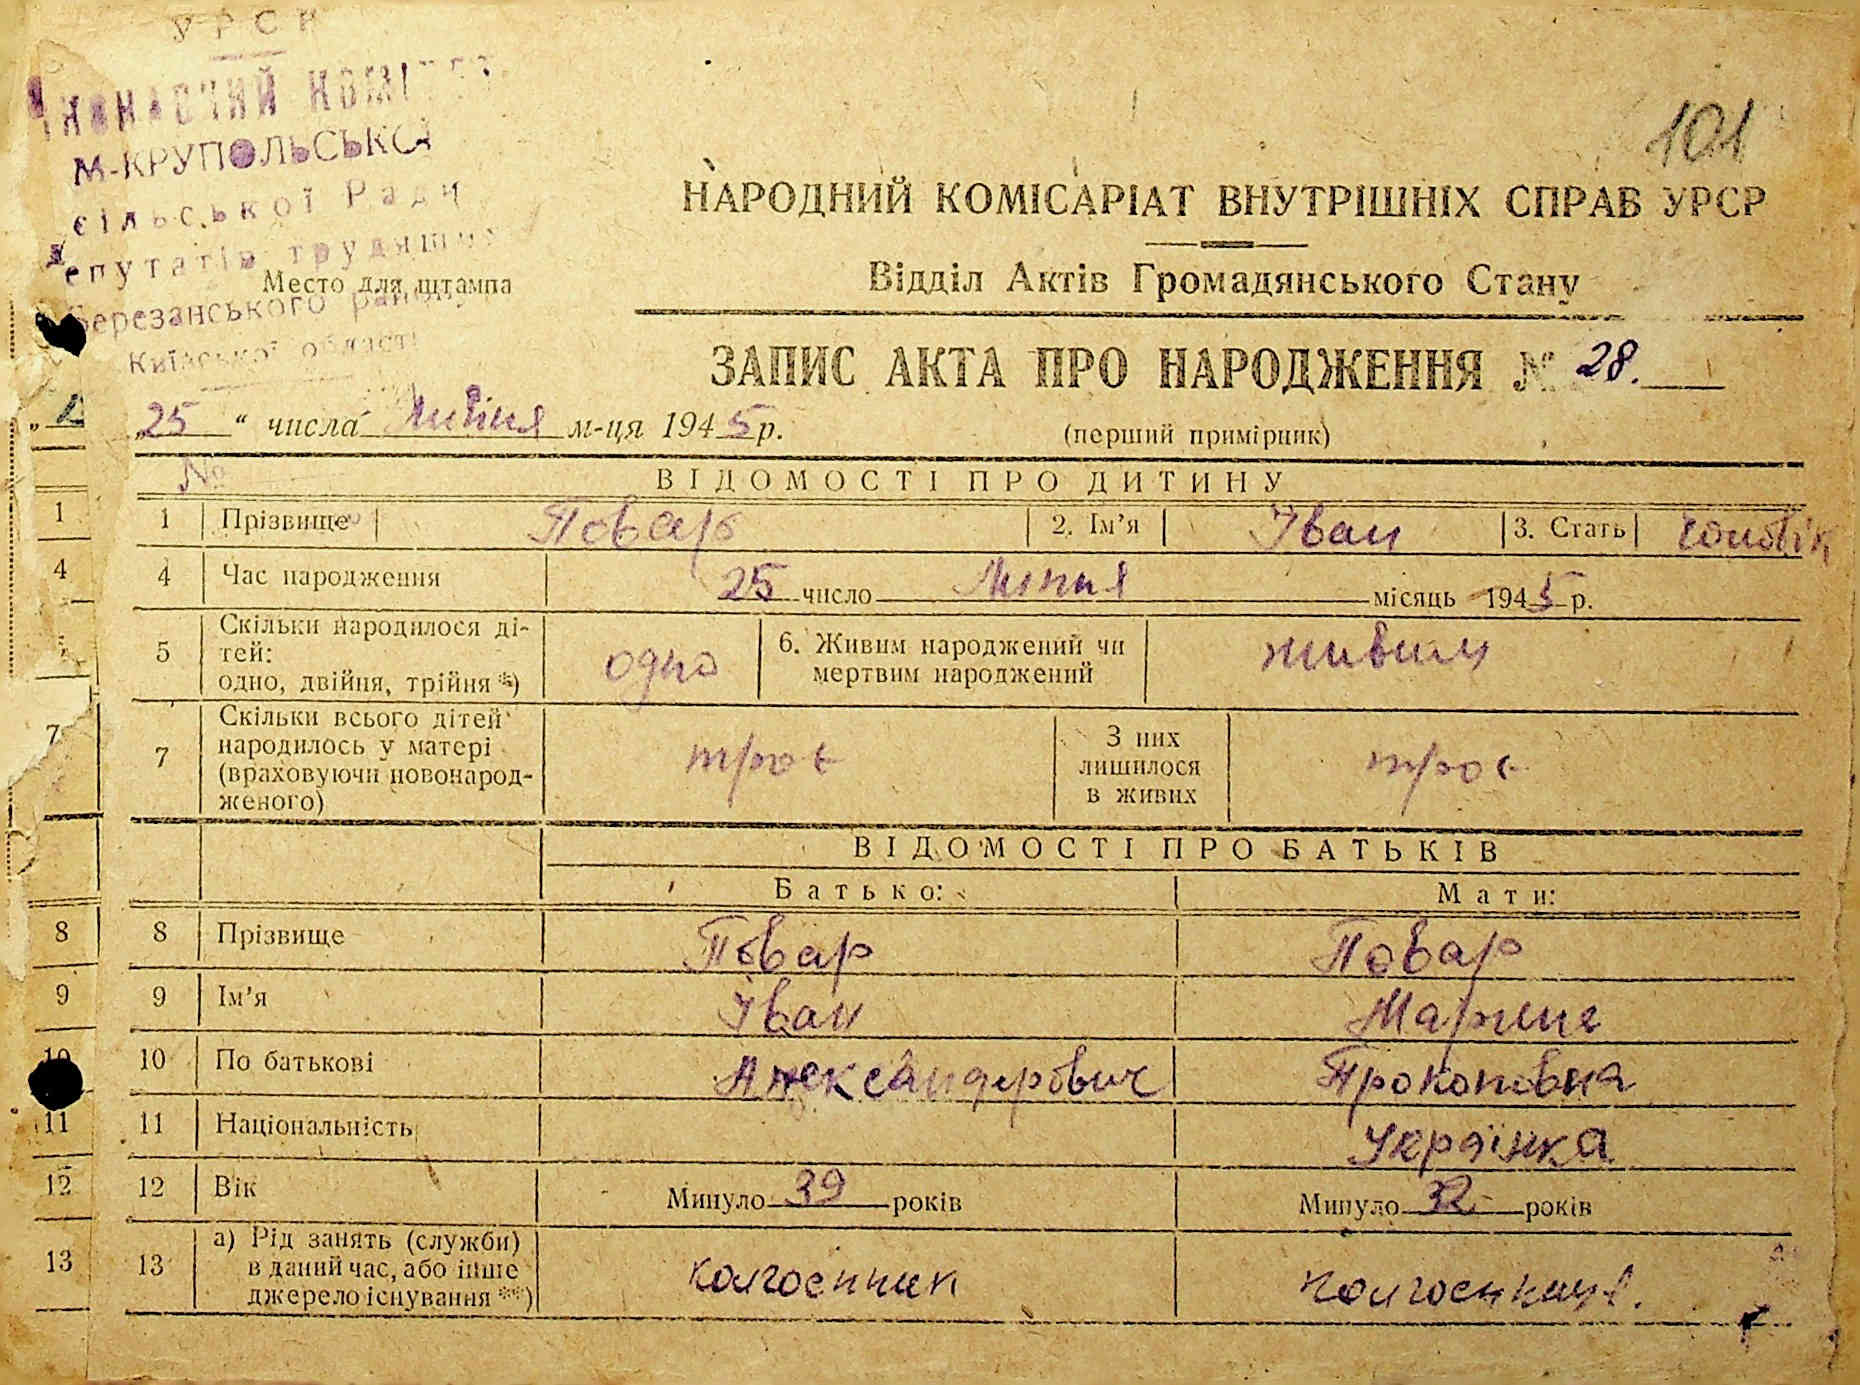 УРСР
ВИКОНАВЧИЙ КОМІТЕТ
М-КРУПОЛЬСЬКОЇ
сільської Ради
депутатів трудящих
Березанського району
Київської області
Место для штампа
101
НАРОДНИЙ КОМІСАРІАТ ВНУТРІШНІХ СПРАВ УРСР
Відділ Актів Громадянського Стану
ЗАПИС АКТА ПРО НАРОДЖЕННЯ № 28.
„25“ числа Липня м-ця 1945 р.
(перший примірник)
№
ВІДОМОСТІ ПРО ДИТИНУ
1 1 Прізвище Повар 2. Ім'я Іван 3. Стать чоловік
4 4 Час народження 25 число Липня місяць 1945 р.
5 5 Скільки народилося ді-
тей:
одно, двійня, трійня *)
одно
6. Живим народжений чи
мертвим народжений
живим
7 7 Скільки всього дітей
народилось у матері
(враховуючи новонарод-
женого)
троє
З них
лишилося
в живих
троє
ВІДОМОСТІ ПРО БАТЬКІВ
Батько: Мати:
8 8 Прізвище Повар Повар
9 9 Ім'я Іван Марина
10 10 По батькові Александрович Прокоповна
11 11 Національність Українка
12 12 Вік Минуло 39 років Минуло 32 років
13 13 а) Рід занять (служби)
в даний час, або інше
джерело існування **)
колгоспник колгоспниця.